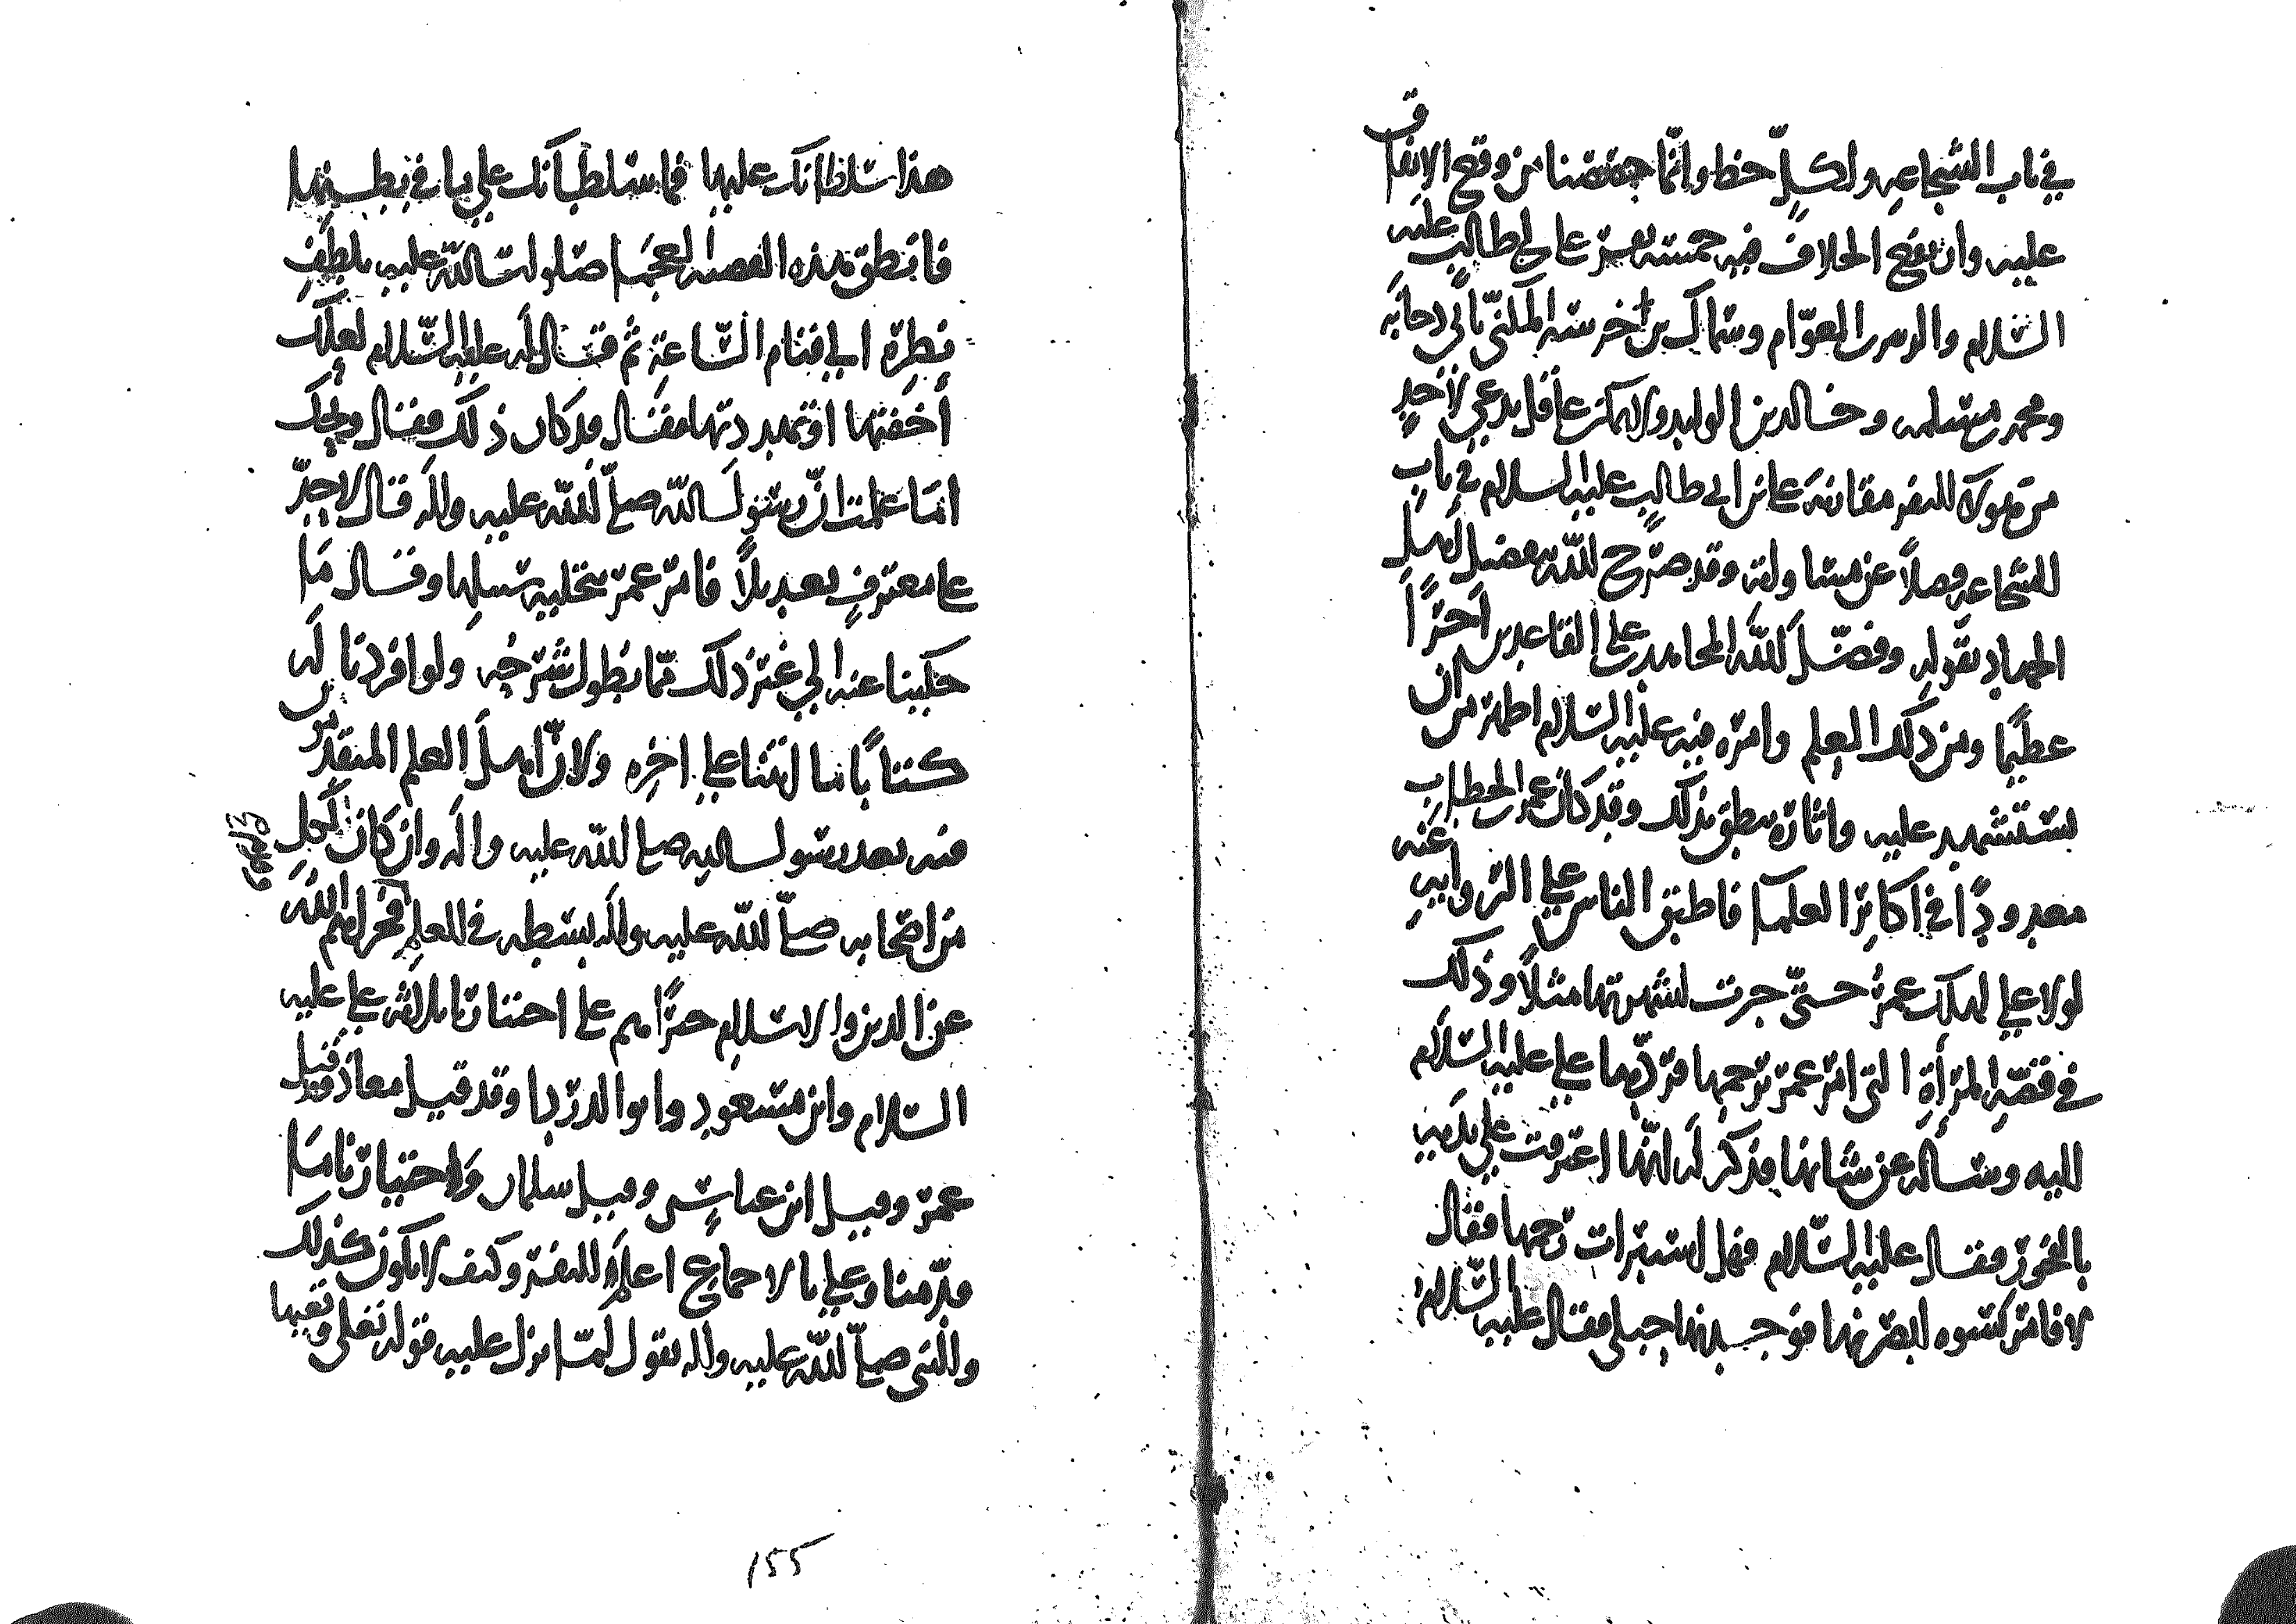 في باب الشجاعة ولكلٍّ حظ وانما خصصنا من وقع الاتفاق
عليه وان وقع الخلاف فيه خمسة نفر علي بن ابي طالب عليه
السلام والزبير بن العوام وسماك بن خرشة المكنى بابي دجانة
ومحمد بن مسلمة وخالد بن الوليد ولا يمكن عاقل يدعي لاحدٍ
من هولاء النفر مقارنة علي بن ابي طالب عليه السلام في باب
الشجاعة فضلاً عن مساواته وقد صرح الله بفضل اهل
الجهاد بقوله وفضّل الله المجاهدين على القاعدين اجرًا
عظيمًا ومن ذلك العلم وامره فيه عليه السلام اظهر من ان
يستشهد عليه واثاره تنطق بذلك وقد كان عمر بن الخطاب
معدودًا في اكابر العلما فاطبق الناس على الرواية عنه
لولا علي لهلك عمر حتّى جرت لشهرتها مثلاً وذلك
في قصة المرأة التي امر عمر برجمها فردّها علي عليه السلام
اليه وسأله عن شانها فذكر له انها اعترفت على يديه
بالفجور فقال عليه السلام فهل استبرات رحمها فقال
لا فامر نسوه لبصرنها فوجدنها حبلى فقال عليه السلام
هذا سلطانك عليها فما سلطانك على ما في بطنها
فانطق بهذه القصة العجما صلوات الله عليه بلطف
نظره الى قيام الساعة ثم قال له عليه السلام لعلك
أخفتها او تهددتها فقال قد كان ذلك فقال ويحك
اما علمت ان رسول الله صلى الله عليه وآله قال لا حدّ
على معترف بعد بلاً فامر عمر بتخلية سبيلها وقال ما
حكينا عنه الى غير ذلك مما يطول شرحه ولو افردنا له
كتابًا ما اتينا على اخره ولان اهل العلم المتقدمين
فيه بعد رسول الله صلى الله عليه وآله وان كان لكل
من اصحابه صلى الله عليه وآله بسطه في العلم فجزاهم الله
عن الدين والاسلام خيرًا هم على اختيارنا ثلاثة علي عليه
السلام وابن مسعود وابو الدردا وقد قيل معاذ وقيل
عمر وقيل ابن عباس وقيل سلمان والاختيارنا ما
قدّمنا وعلي بالاجماع اعلم الثلاثة وكيف لا يكون كذلك
والنبي صلى الله عليه وآله يقول لما نزل عليه قوله تعالى وتعيها
155